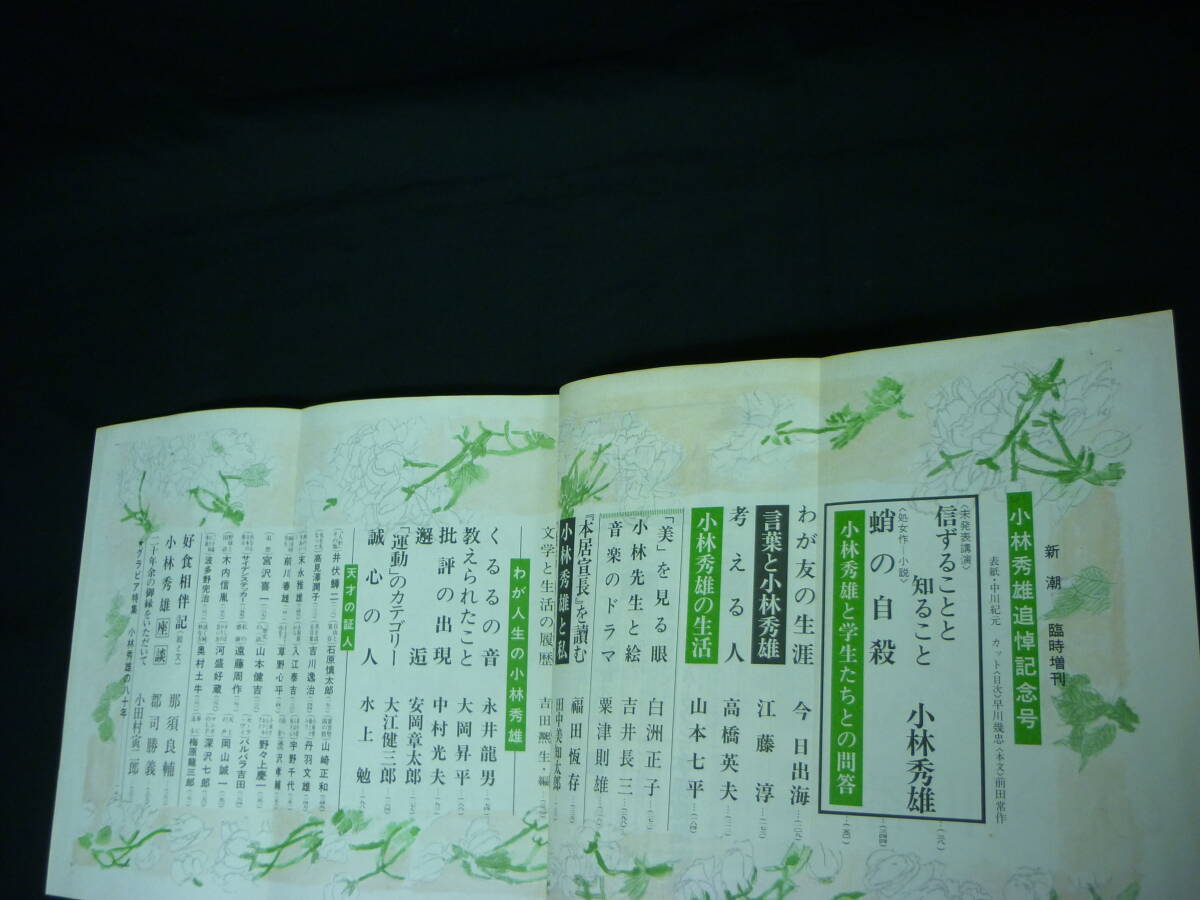 新潮 臨時増刊
小林秀雄追悼記念号
表紙・中川紀元 カット〈目次〉早川幾忠〈本文〉前田常作
〈未発表講演〉
信ずることと
知ること
小林秀雄
〈処女作―小説〉
蛸の自殺
小林秀雄と学生たちとの問答
わが友の生涯 今日出海
言葉と小林秀雄 江藤淳
考える人 高橋英夫
小林秀雄の生活 山本七平
「美」を見る眼 白洲正子
小林先生と絵 吉井長三
音楽のドラマ 粟津則雄
『本居宣長』を読む 福田恆存
小林秀雄と私 田中美知太郎
文学と生活の履歴 吉田凞生・編
わが人生の小林秀雄
くるるの音 永井龍男
教えられたこと 大岡昇平
批評の出現 中村光夫
邂逅 安岡章太郎
「運動」のカテゴリー 大江健三郎
誠心の人 水上勉
天才の証人
井伏鱒二
石原慎太郎
山崎正和
高見澤潤子
吉川逸治
丹羽文雄
末永雅雄
入江泰吉
宇野千代
前川春雄
草野心平
宮沢喜一
山本健吉
野々上慶一
サイデンステッカー
遠藤周作
バルバラ吉田
木内信胤
河盛好蔵
岡山誠一
波多野完治
奥村土牛
深沢七郎
梅原龍三郎
好食相伴記 那須良輔
小林秀雄「座」談 郡司勝義
二十年余の御縁をいただいて 小田村寅二郎
★グラビア特集 小林秀雄の八十年